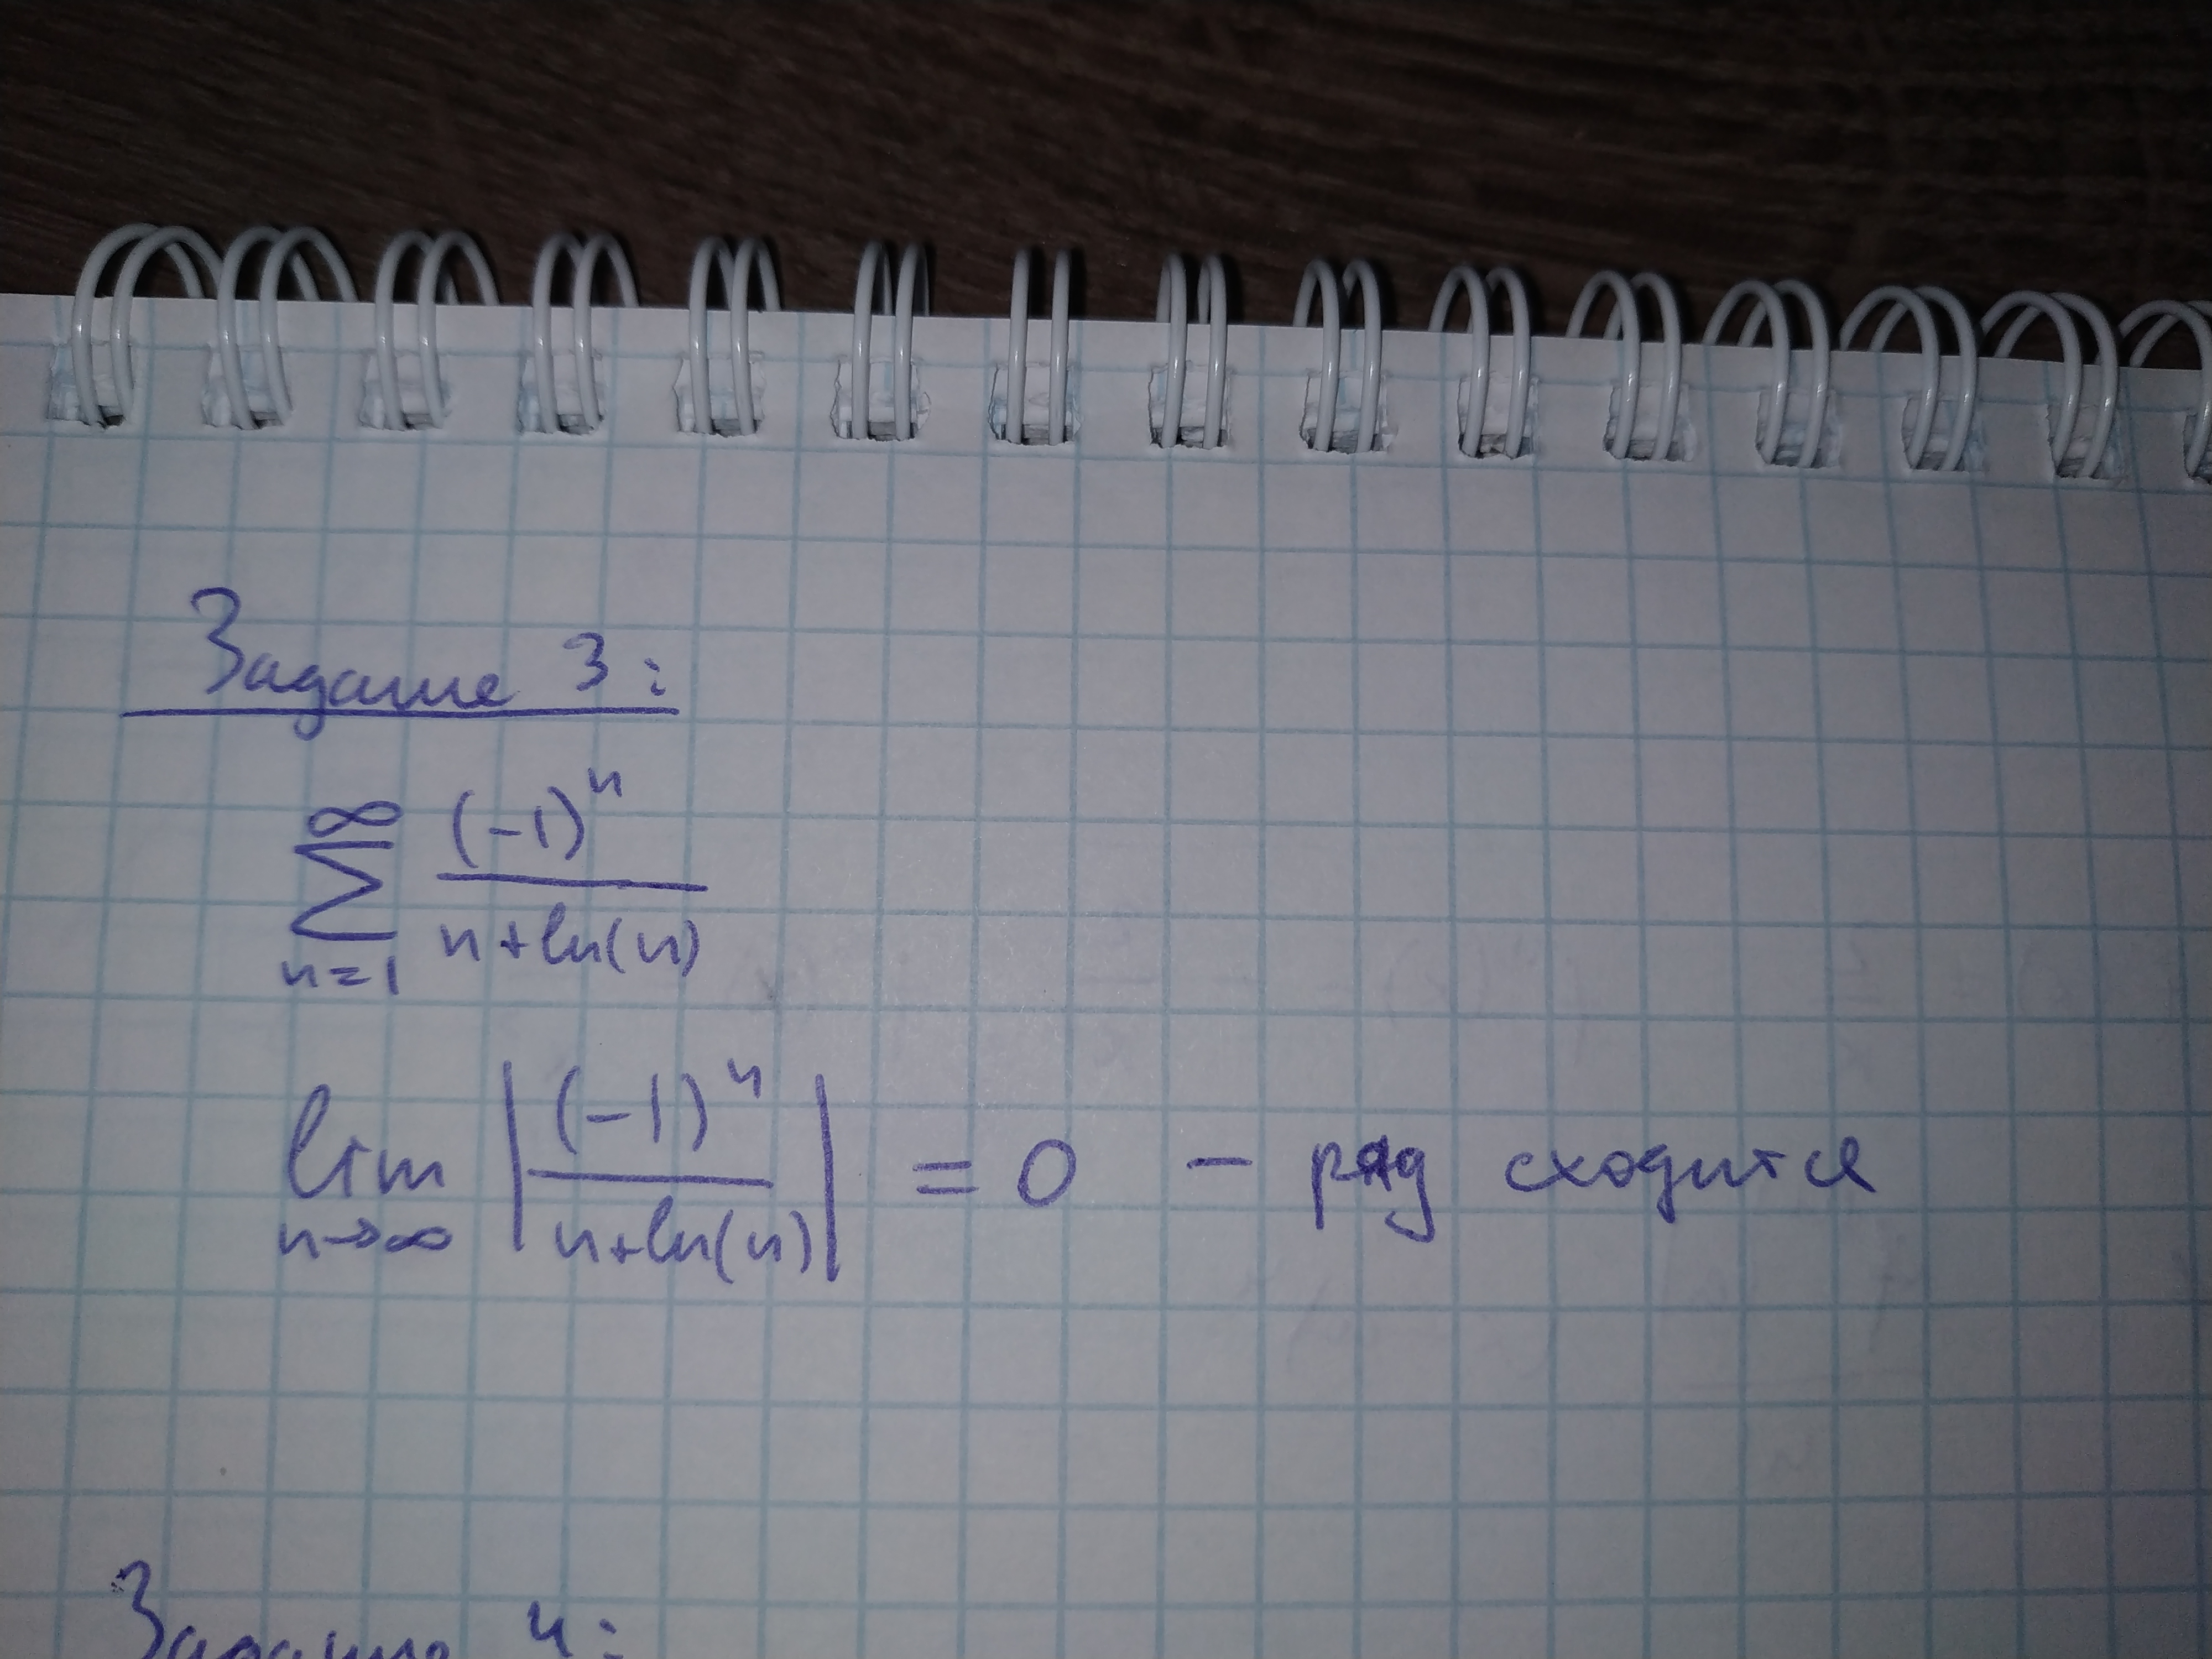 Задание 3:
∞
∑ (-1)^n / (n+ln(n))
n=1
lim |(-1)^n / (n+ln(n))| = 0 - ряд сходится
n→∞
Задание 4: